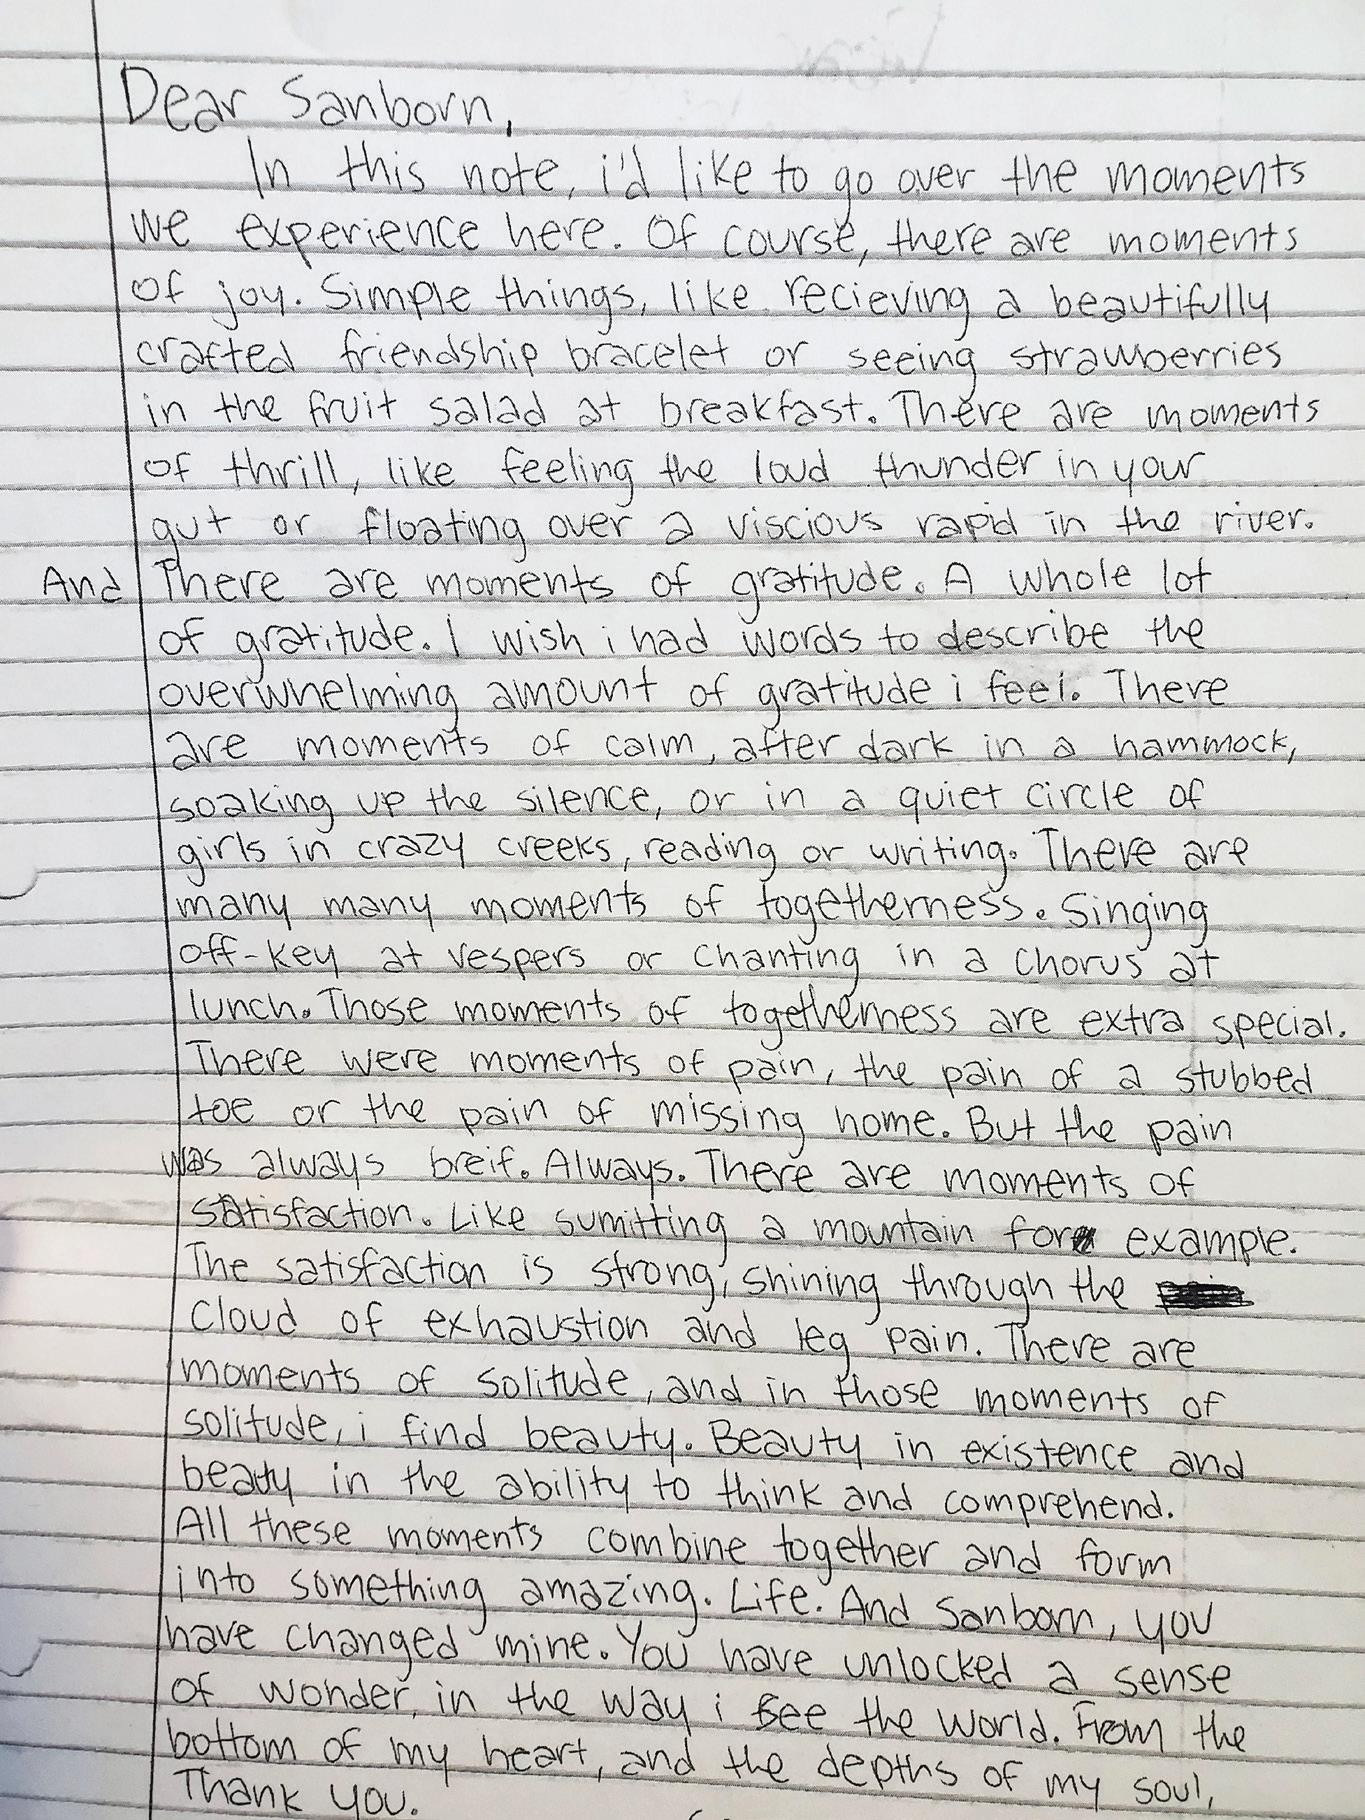 Dear Sanborn,
In this note, i'd like to go over the moments
we experience here. Of course, there are moments
of joy. Simple things, like recieving a beautifully
crafted friendship bracelet or seeing strawberries
in the fruit salad at breakfast. There are moments
of thrill, like feeling the loud thunder in your
gut or floating over a viscious rapid in the river.
And There are moments of gratitude. A whole lot
of gratitude. I wish i had words to describe the
overwhelming amount of gratitude i feel. There
are moments of calm, after dark in a hammock,
soaking up the silence, or in a quiet circle of
girls in crazy creeks, reading or writing. There are
many many moments of togetherness. Singing
off-key at vespers or chanting in a chorus at
lunch. Those moments of togetherness are extra special.
There were moments of pain, the pain of a stubbed
toe or the pain of missing home. But the pain
was always breif. Always. There are moments of
satisfaction. Like sumitting a mountain for example.
The satisfaction is strong, shining through the
cloud of exhaustion and leg pain. There are
moments of solitude, and in those moments of
solitude, i find beauty. Beauty in existence and
beauty in the ability to think and comprehend.
All these moments combine together and form
into something amazing. Life. And Sanborn, you
have changed mine. You have unlocked a sense
of wonder, in the way i see the world. From the
bottom of my heart, and the depths of my soul,
Thank you.